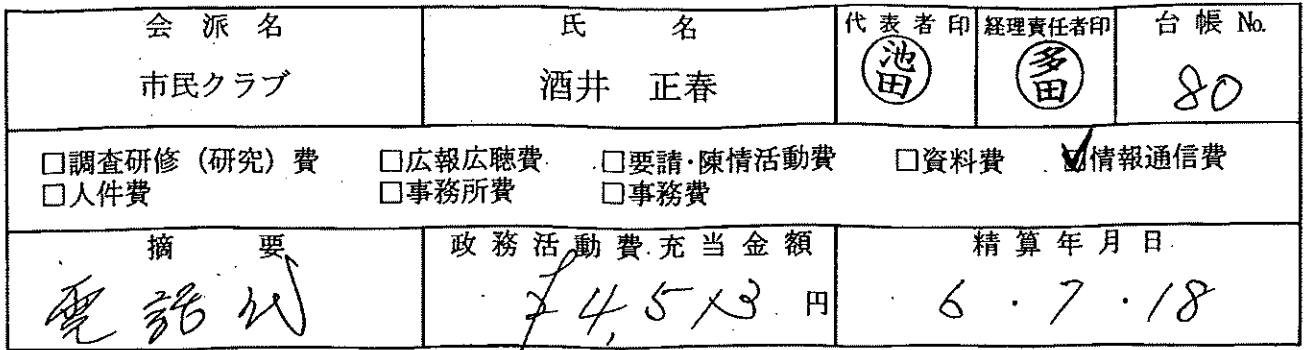 会派名 氏名 代表者印 経理責任者印 台帳No.
市民クラブ 酒井 正春 池田 多田 80
□調査研修（研究）費 □広報広聴費 □要請・陳情活動費 □資料費 ☑情報通信費
□人件費 □事務所費 □事務費
摘要 政務活動費充当金額 精算年月日
電話代 ¥4,513円 6・7・18